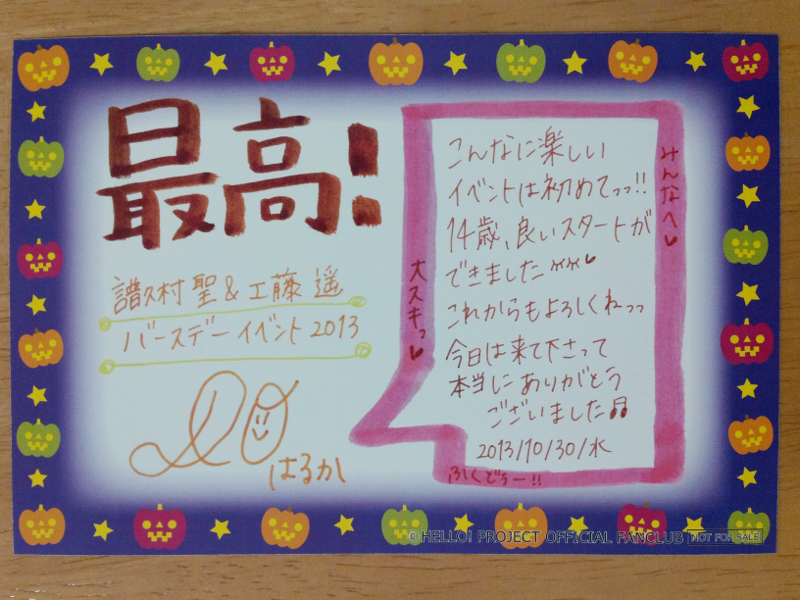 最高!
譜久村聖&工藤遥
バースデーイベント2013
はるか
みんなへ♥
こんなに楽しい
イベントは初めてっっ!!
14歳、良いスタートが
できました♥
これからもよろしくねっっ
今日は来て下さって
本当にありがとう
ございました♫
2013/10/30/水
大スキっ♥
ふくどぅー!!
© HELLO! PROJECT OFFICIAL FANCLUB NOT FOR SALE